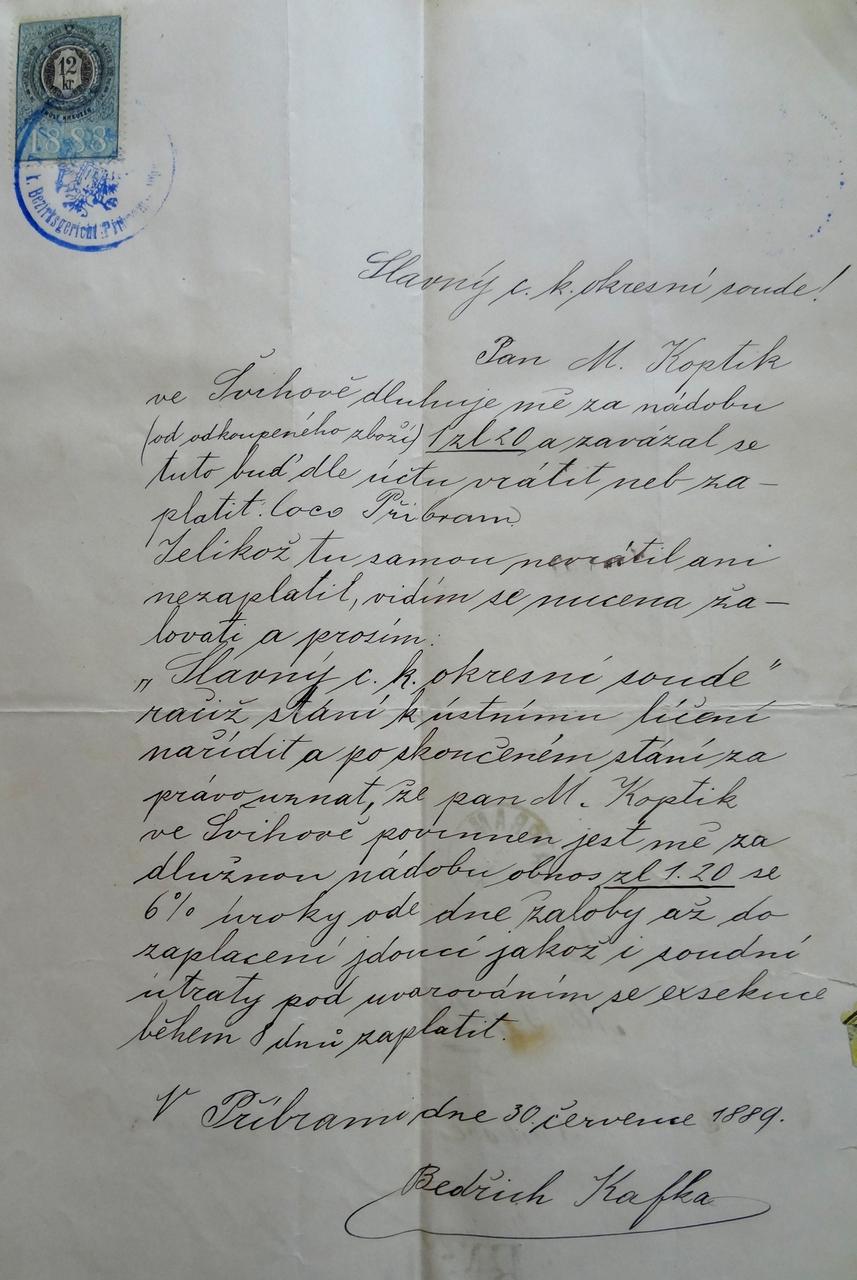 12
kr.
1888
k. Bezirksgericht
Slavný c. k. okresní soude!
Pan M. Koptik
ve Švihově dluhuje mě za nádobu
(od odkoupeného zboží) 1 zl 20 a zavázal se
tuto buď dle účtu vrátit neb za-
platit loco Příbram.
Jelikož tu samou nevrátil ani
nezaplatil, vidím se nucena ža-
lovati a prosím:
„Slavný c. k. okresní soude"
račiž stání k ústnímu líčení
nařídit a po skončeném stání za
právo uznat, že pan M. Koptik
ve Švihově povinnen jest mě za
dlužnou nádobu obnos zl 1.20 se
6% úroky ode dne žaloby až do
zaplacení jdoucí jakož i soudní
útraty pod uvarováním se exsekuce
během 8 dnů zaplatit.
V Příbrami dne 30. července 1889.
Bedřich Kafka